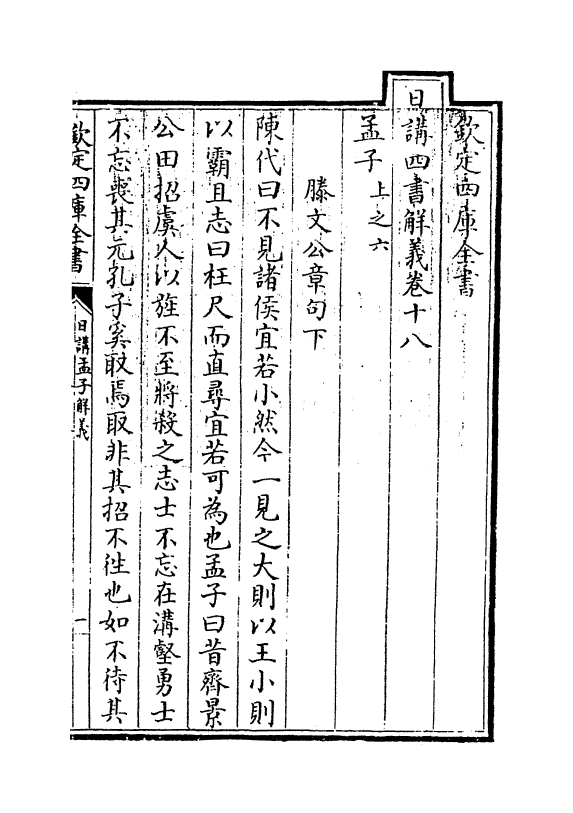 欽定四庫全書
日講四書解義卷十八
孟子上之六
滕文公章句下
陳代曰不見諸侯宜若小然今一見之大則以王小則
以霸且志曰枉尺而直尋宜若可為也孟子曰昔齊景
公田招虞人以旌不至將殺之志士不忘在溝壑勇士
不忘喪其元孔子奚取焉取非其招不往也如不待其
欽定四庫全書
日講孟子解義
一